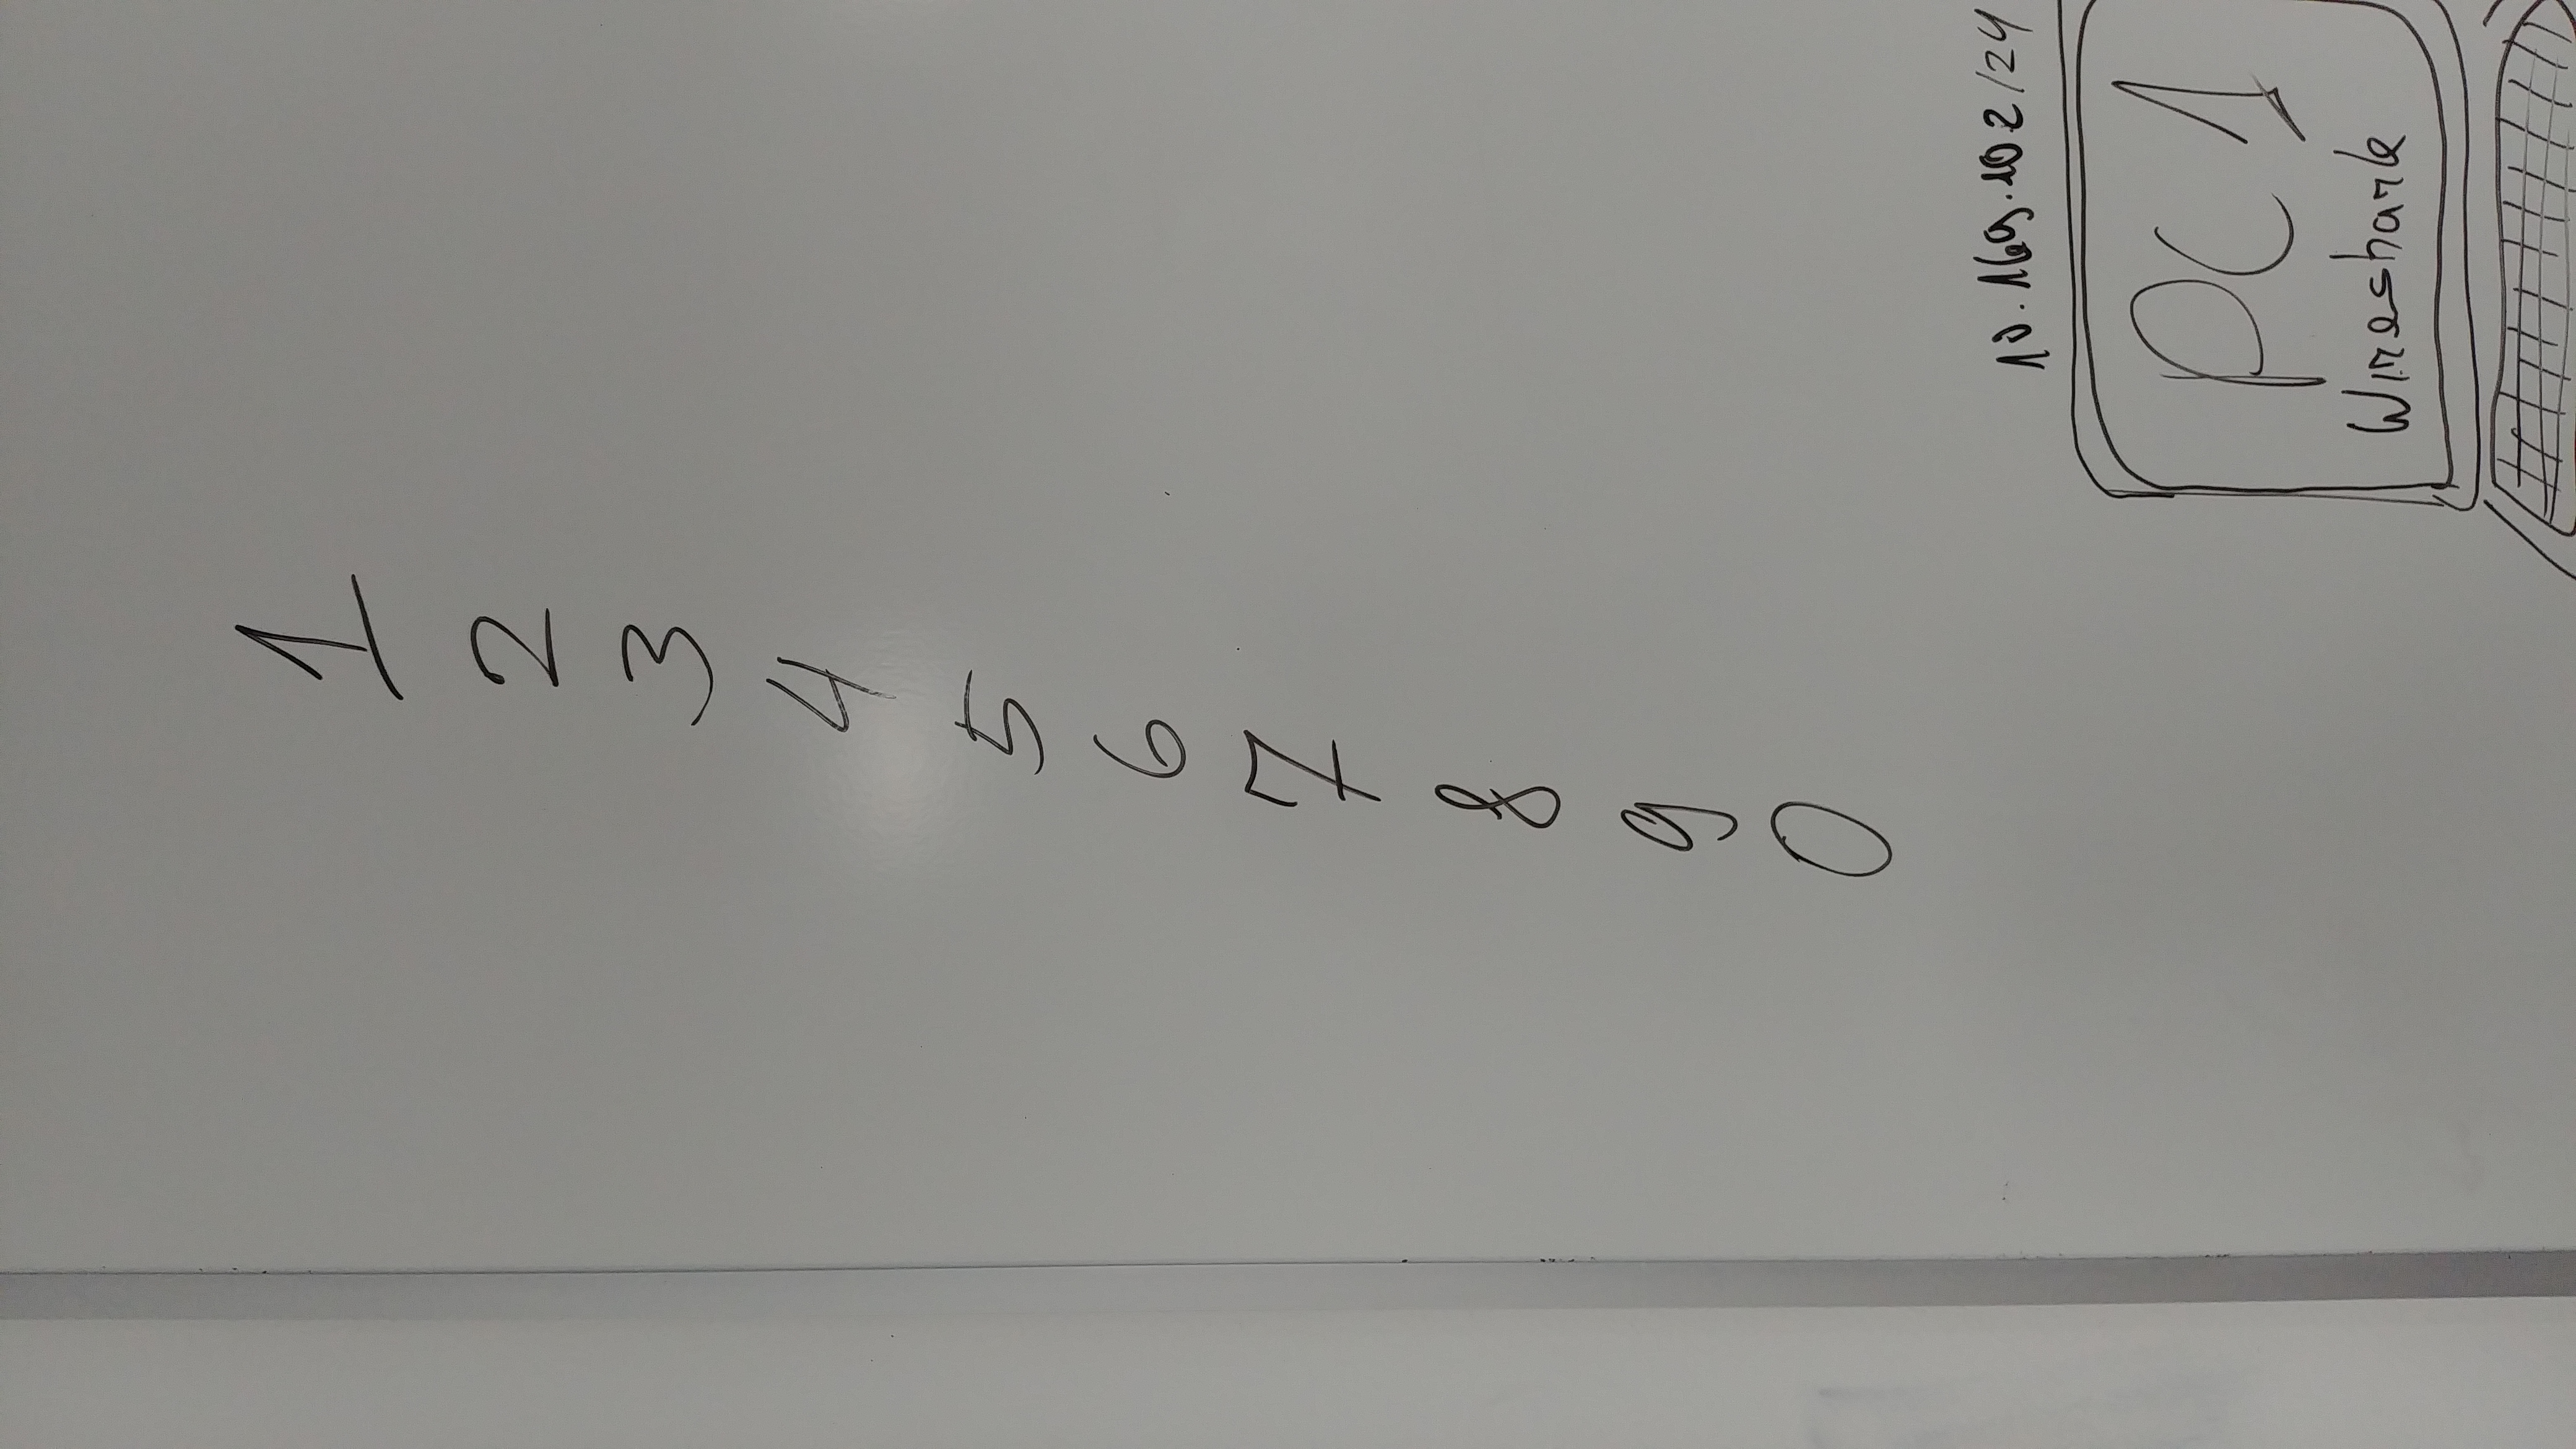 1
2
3
4
5
6
7
8
9
0
10.169.102/24
PC1
Wireshark